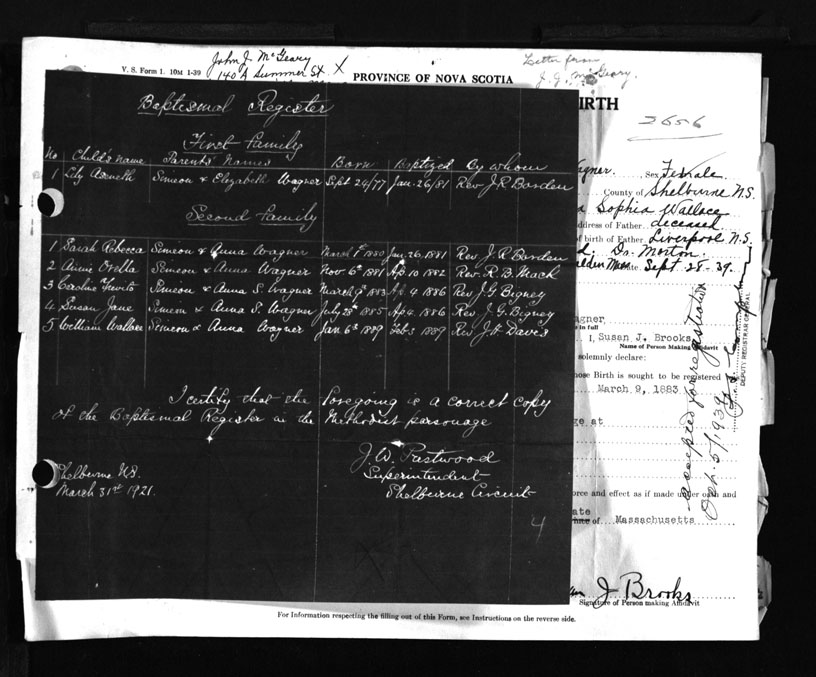 John J. McGeary
140A Summer St. X
Letter from
J. G. McGeary.
V. S. Form 1. 10M 1-39
PROVINCE OF NOVA SCOTIA
BIRTH
2656
Baptismal Register
First Family
No Child's name Parents' Names Born Baptized By whom
1 Lily Aseneth Simeon & Elizabeth Wagner Sept 24/77 Jan. 26/81 Rev J. R. Borden
Second Family
1 Sarah Rebecca Simeon & Anna Wagner March 1st 1880 Jan. 26. 1881 Rev J. R. Borden
2 Annie Orella Simeon & Anna Wagner Nov. 6th 1881 Ap 10 1882 Rev. R. B. Mack
3 Caroline Simeon & Anna S. Wagner March 9th 1883 Ap. 4 1886 Rev J. G Bigney
4 Susan Jane Simeon & Anna S. Wagner July 28th 1885 Ap 4. 1886 Rev. J. G. Bigney
5 William Wallace Simeon & Anna Wagner Jan 6th 1889 Feb. 3 1889 Rev J. Daves
I certify that the foregoing is a correct copy
of the Baptismal Register in the Methodist parsonage
J. W. Prestwood
Superintendent
Shelburne Circuit
Shelburne N.S.
March 31st 1921.
4
agner. Sex Female
County of Shelburne N.S.
a Sophia Wallace
ddress of Father deceased
f birth of Father Liverpool N.S.
d. Dr. Morton
alden Mass. Date. Sept. 25-39.
agner
e in full
I, Susan J. Brooks
Name of Person Making Affidavit
solemnly declare:
hose Birth is sought to be registered
March 9, 1883
ge at
orce and effect as if made under oath and
ate
of Massachusetts
an J Brooks
Signature of Person making Affidavit
accepted for registration
Oct. 5/1939
DEPUTY REGISTRAR GENERAL
For Information respecting the filling out of this Form, see Instructions on the reverse side.